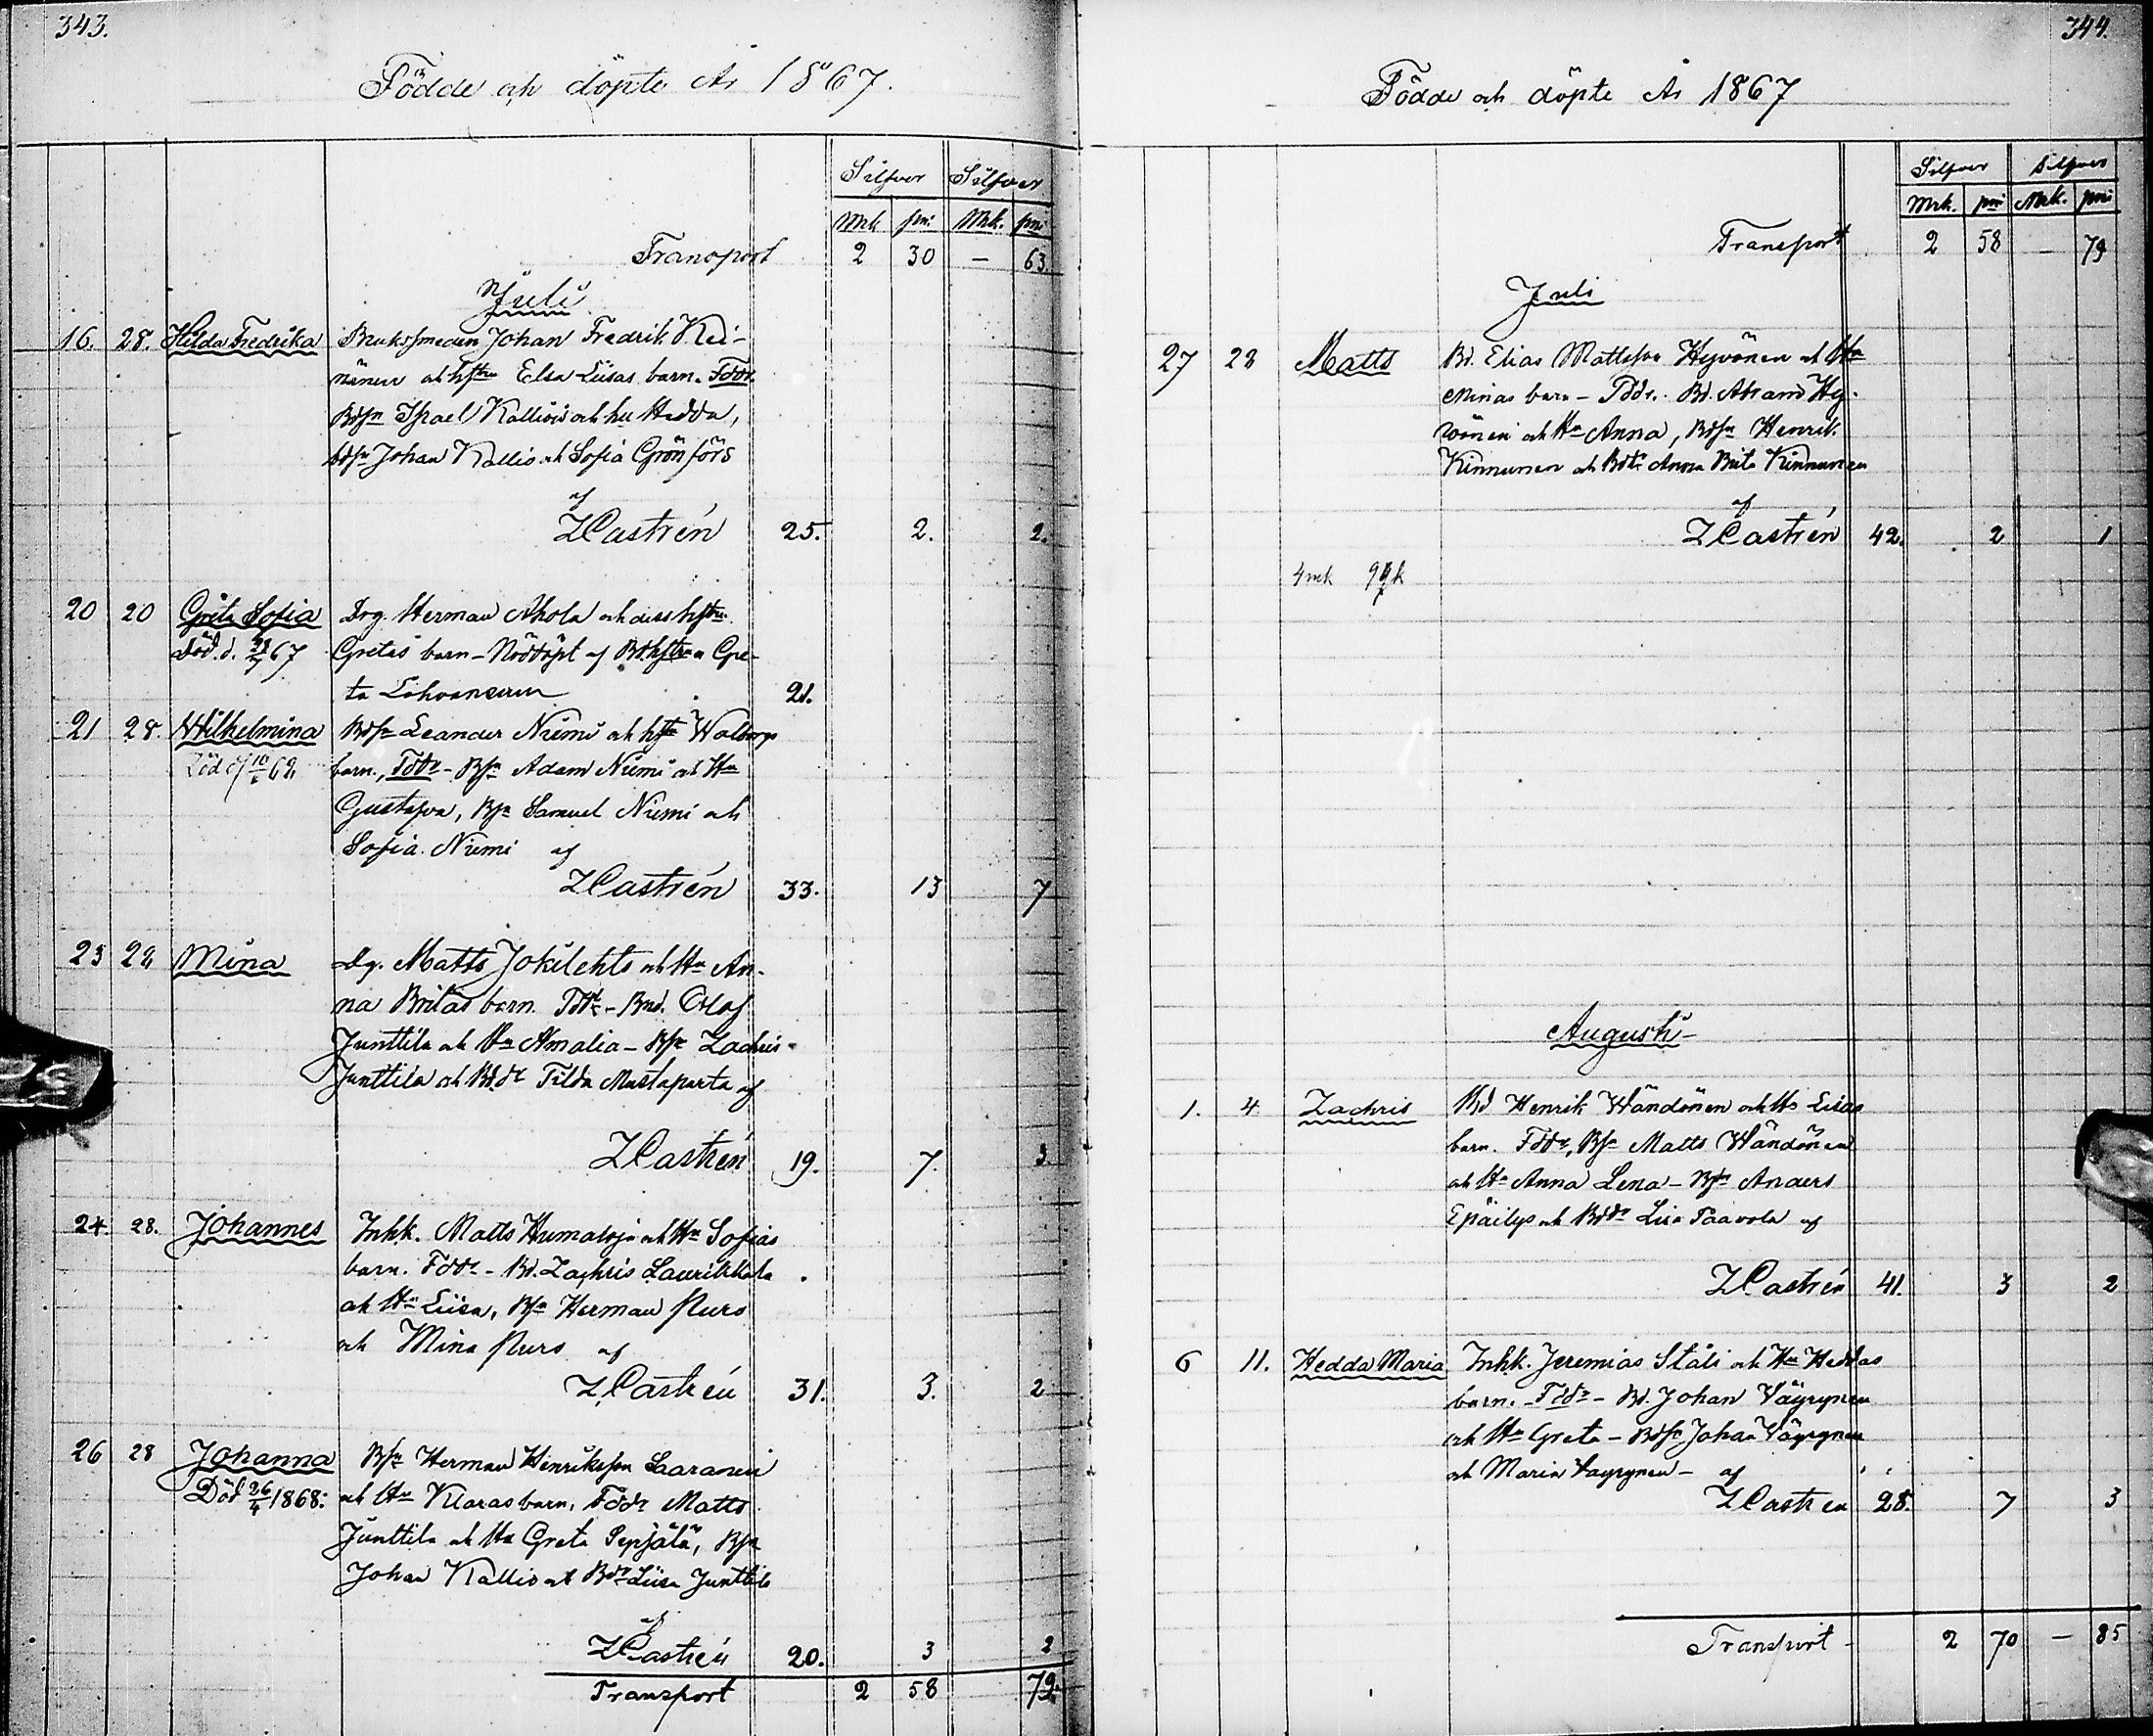 343.
Födde och döpte År 1867.
Silfver Silfver
Mrk pni Mrk. pni
Transport 2 30 — 63.
Juli
16. 28. Hilda Fredrika Bruksmeden Johan Fredrik Kei-
nänen och hstru Elsa Liisas barn. Fddr.
Bdsn Israel Kallio och hu Hedda,
bdsn Johan Kallio och Sofia Grönfors
af
ZCastrén 25. 2. 2.
20 20 Greta Sofia Drg. Herman Ahola och dess hstru
Död. d. 67 Gretas barn - Nöddöpt af Bdhstrun Gre-
ta 21.
21 28. Wilhelmina Bdsn Leander Niemi och hstr Walborgs
Död barn. Fddr - Bsn Adam Niemi och Hu
Gustafva, Bsn Samuel Niemi och
Sofia Niemi af
ZCastrén 33. 13 7
23 Mina Dg. Matts Jokilehto och Hu An-
na Britas barn. Fddr - Bnd. Olof
Junttila och Hu Amalia - Bsn Zachris
Junttila och Bddr Tilda Mustaparta af
ZCastrén 19. 7. 3
24. 28. Johannes Inhk. Matts Humaloja och Hu Sofias
barn. Fddr - Bd. Zachris Laurikkala
och Hu Liisa, Bsn Herman Purs
och Mina Purs af
ZCastrén 31. 3. 2
26 28 Johanna Bsn Herman Henriksson Saaranen
Död 26/4 1868. och Hu Klaras barn, Fddr Matts
Junttila och Hu Greta Seppälä, Bsn
Johan Kallio och Bdr Liisa Junttila
af
ZCastrén 20. 3 2
Transport 2 58 79.
344.
Födde och döpte År 1867
Silfver Silfver
Mrk. pni Mrk. pni
Transport 2 58 — 79
Juli
27 28 Matts Bd. Elias Mattsson Hyvönen och Hu
Minas barn - Fddr. Bd. Abram Hy-
vönen och Hu Anna, Bdsn Henrik
Kinnunen och Bdtr Anna Brita Kinnunen
af
ZCastrén 42. 2 1
4 mk
Augusti
1. 4 Zachris Bd Henrik Wändönen och Hs Liisas
barn. Fddr, Bsn Matts Wändönen
och Hu Anna Lena - Bsn Anders
Epäilys och Bddr Liisa Paavola af
ZCastrén 41. 3 2
6 11. Hedda Maria Inhk. Jeremias Ståli och Hu Heddas
barn. - Fddr - Bd. Johan Väyrynen
och Hu Greta - Bdsn Johan Väyrynen
och Maria Väyrynen - af
ZCastrén 28. 7 3
Transport - 2 70 — 85